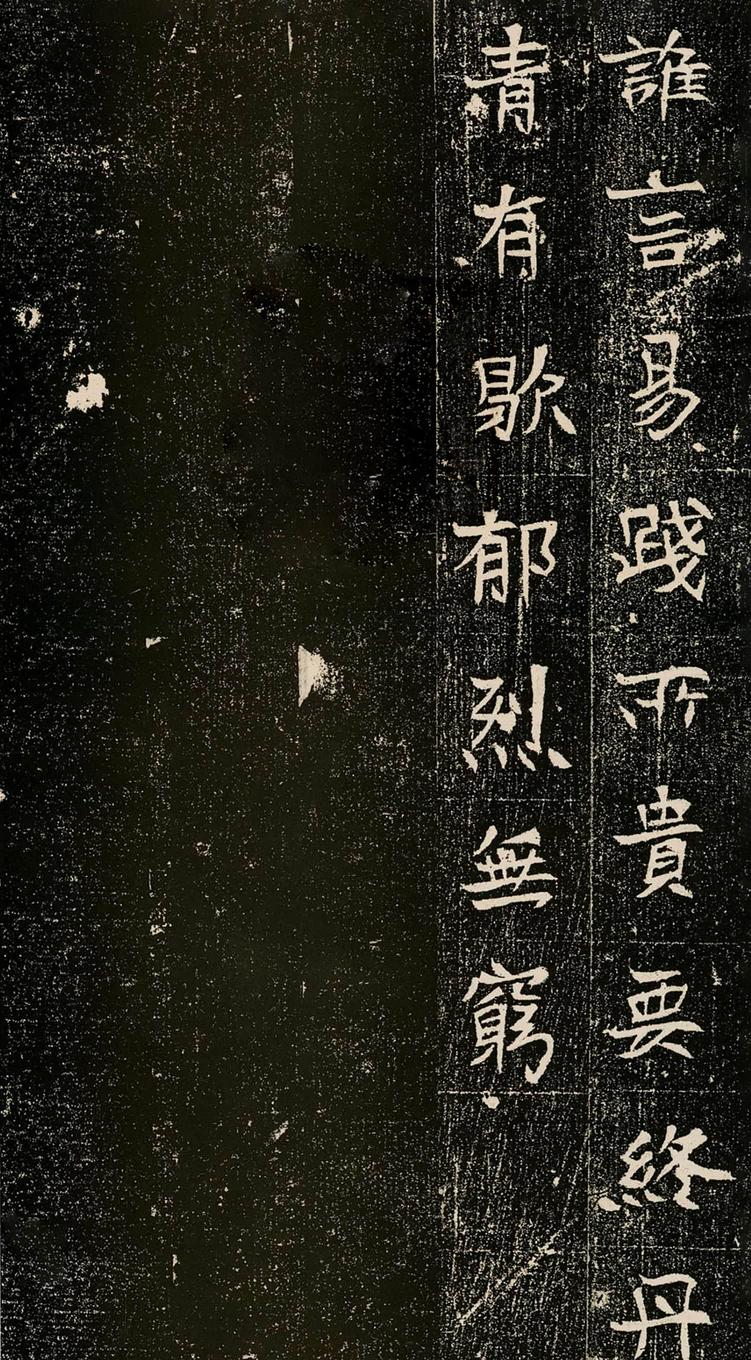 誰言易踐所貴要終丹
青有歇郁烈無窮